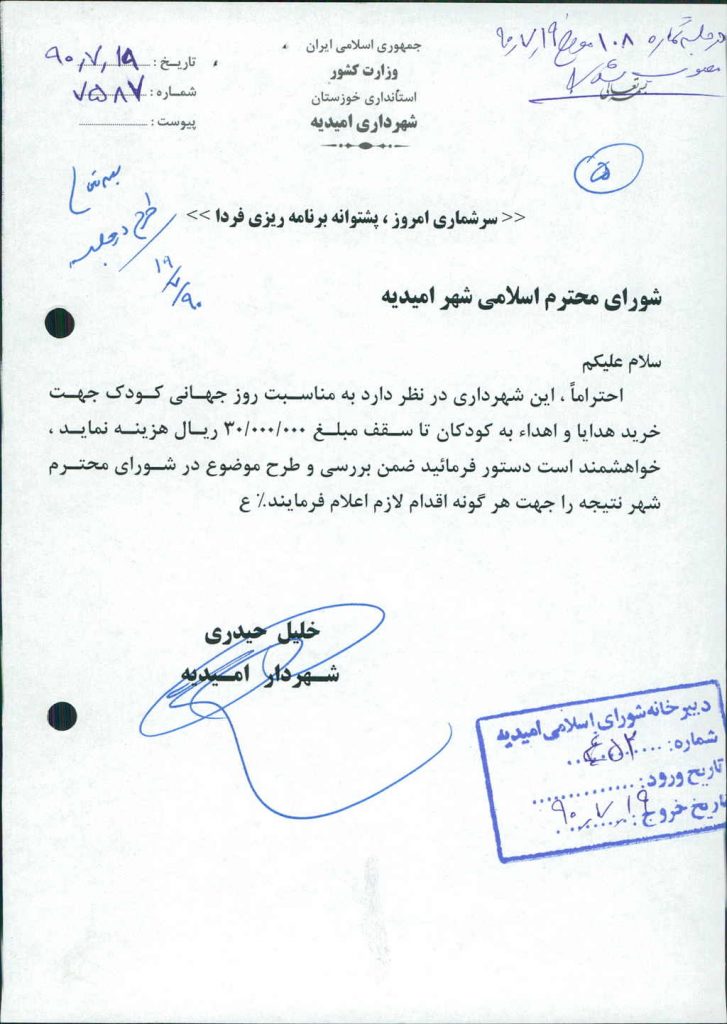 در جلسه شماره ۱۰۸ مورخ ۹۰,۷,۱۹
مصوب شد
بسمه تعالی
جمهوری اسلامی ایران
وزارت کشور
استانداری خوزستان
شهرداری امیدیه
تاریخ : ۹۰,۷,۱۹
شماره : ۷۵۸۷
پیوست :
بسمه تعالی
طرح در جلسه
۹۰/۷/۱۹
<< سرشماری امروز ، پشتوانه برنامه ریزی فردا >>
شورای محترم اسلامی شهر امیدیه
سلام علیکم
احتراماً ، این شهرداری در نظر دارد به مناسبت روز جهانی کودک جهت
خرید هدایا و اهداء به کودکان تا سقف مبلغ ۳۰/۰۰۰/۰۰۰ ریال هزینه نماید ،
خواهشمند است دستور فرمائید ضمن بررسی و طرح موضوع در شورای محترم
شهر نتیجه را جهت هر گونه اقدام لازم اعلام فرمایند.٪ ع
خلیل حیدری
شهردار امیدیه
دبیرخانه شورای اسلامی امیدیه
شماره :
تاریخ ورود :
تاریخ خروج : ۹۰,۷,۱۹